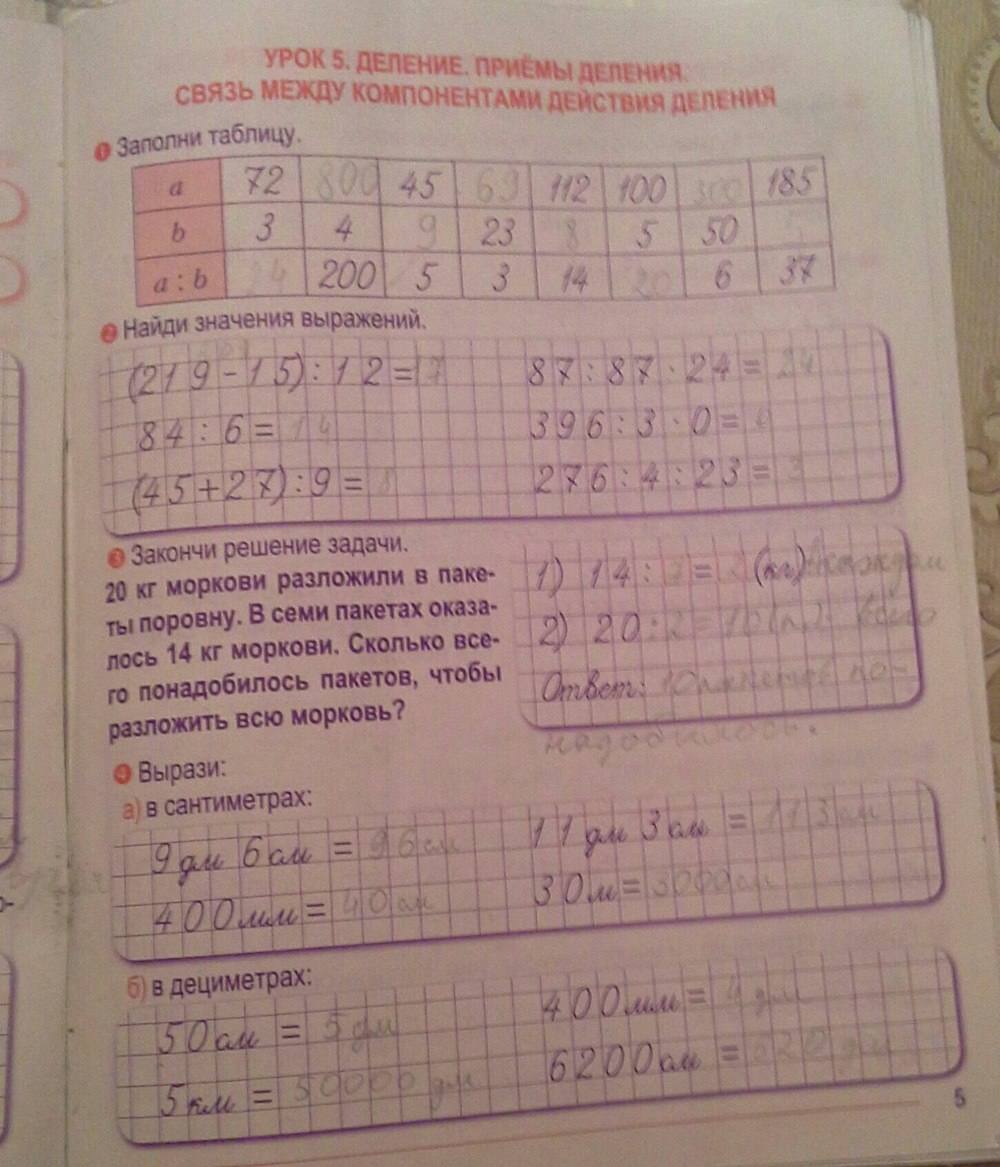 УРОК 5. ДЕЛЕНИЕ. ПРИЁМЫ ДЕЛЕНИЯ.
СВЯЗЬ МЕЖДУ КОМПОНЕНТАМИ ДЕЙСТВИЯ ДЕЛЕНИЯ
1 Заполни таблицу.
a 72 800 45 69 112 100 300 185
b 3 4 9 23 8 5 50 5
a : b 24 200 5 3 14 20 6 37
2 Найди значения выражений.
(219-15):12=17 87:87·24=24
84:6=14 396:3·0=0
(45+27):9=8 276:4:23=3
3 Закончи решение задачи.
20 кг моркови разложили в паке-
ты поровну. В семи пакетах оказа-
лось 14 кг моркови. Сколько все-
го понадобилось пакетов, чтобы
разложить всю морковь?
1) 14:7=2(кг) в каждом
2) 20:2=10(п.) всего
Ответ: 10 пакетов по-
надобилось.
4 Вырази:
а) в сантиметрах:
9дм 6см = 96см 11дм 3см = 113см
400мм = 40см 30м = 3000см
б) в дециметрах:
50см = 5дм 400мм = 4дм
5км = 50000дм 6200см = 620дм
5